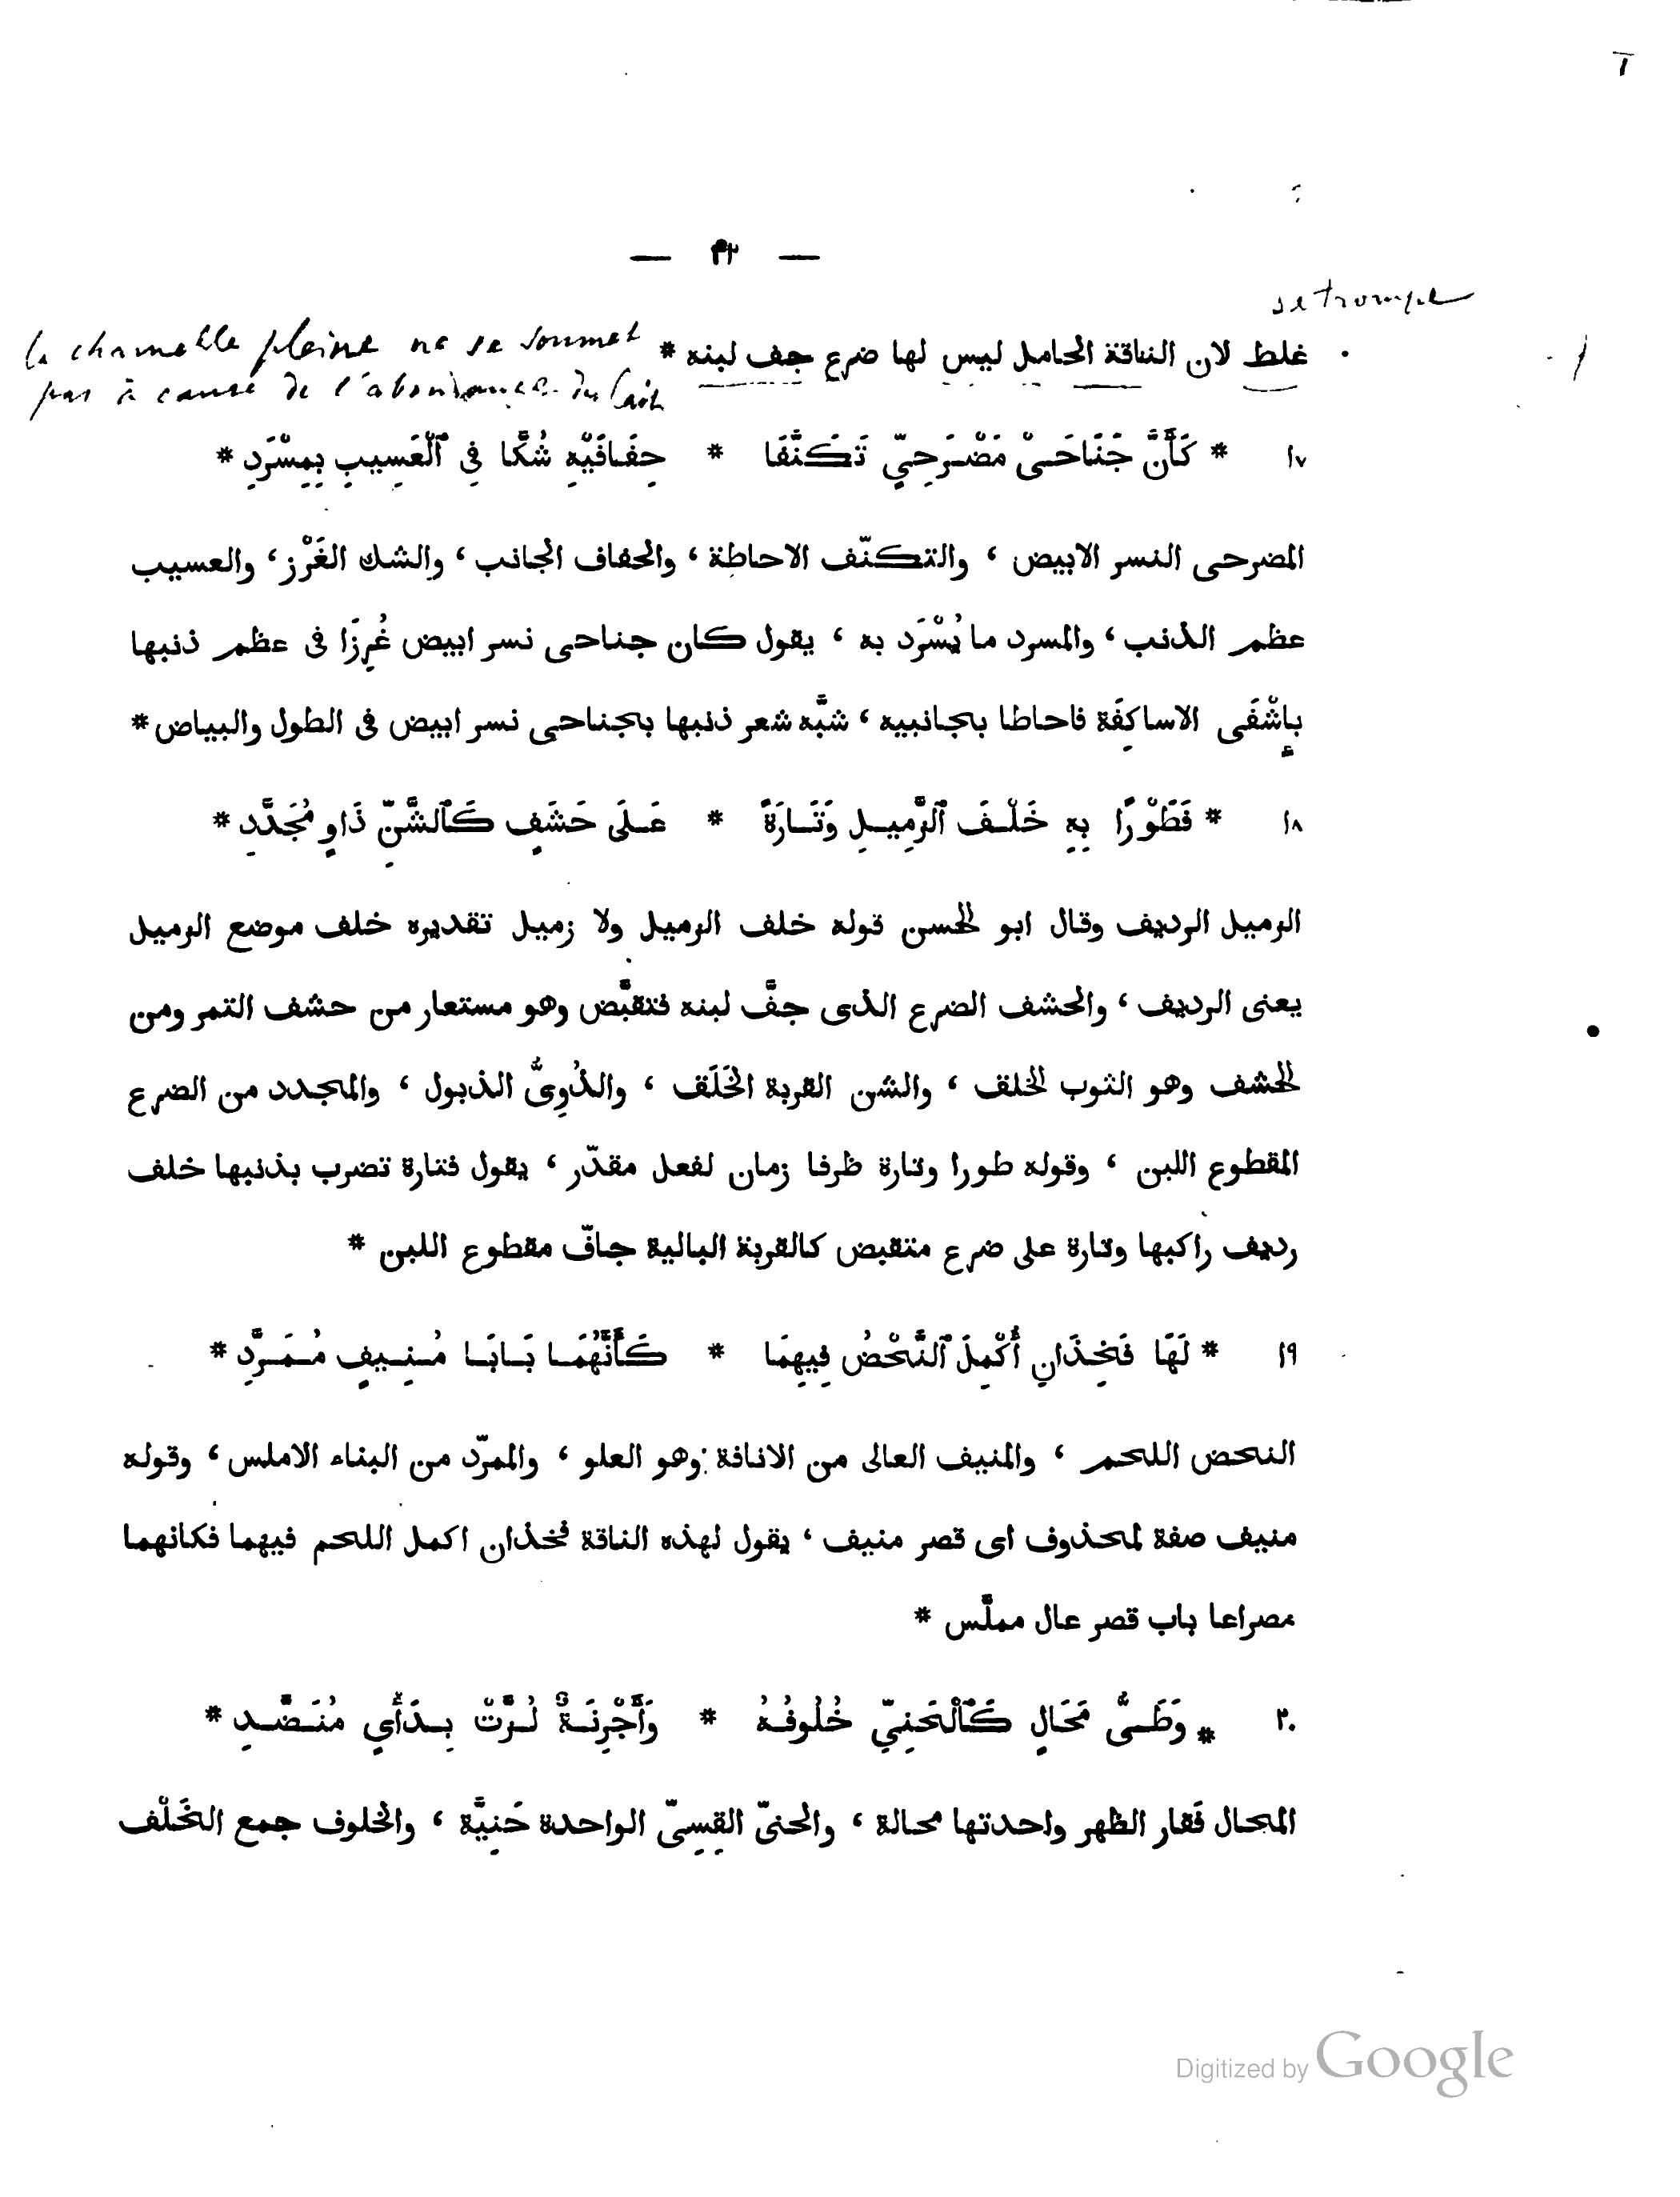 — ٣٢ —
se trompe
غلط لان الناقة الحامل ليس لها ضرع جف لبنه *
la chamelle pleine ne se soumet
pas à cause de l'abondance du lait
١٧ * كَأَنَّ جَنَاحَىْ مَضْرَحِيٍّ تَكَنَّفَا * حِفَافَيْهِ شُكَّا فِي ٱلْعَسِيبِ بِمِسْرَدِ *
المضرحى النسر الابيض ، والتكنّف الاحاطة ، والحفاف الجانب ، والشك الغَرْز ، والعسيب
عظم الذنب ، والمسرد ما يُسْرَد به ، يقول كان جناحى نسر ابيض غُرِزَا فى عظم ذنبها
بإِشْفَى الاساكِفَة فاحاطا بجانبيه ، شبَّه شعر ذنبها بجناحى نسر ابيض فى الطول والبياض *
١٨ * فَطَوْرًا بِهِ خَلْفَ ٱلزَّمِيلِ وَتَارَةً * عَلَى حَشَفٍ كَٱلشَّنِّ ذَاوٍ مُجَدَّدِ *
الزميل الرديف وقال ابو الحسن قوله خلف الزميل ولا زميل تقديره خلف موضع الزميل
يعنى الرديف ، والحشف الضرع الذى جفَّ لبنه فتقبَّض وهو مستعار من حشف التمر ومن
الحشف وهو الثوب الخلق ، والشن القربة الخَلَق ، والذُوِىُّ الذبول ، والمجدد من الضرع
المقطوع اللبن ، وقوله طورا وتارة ظرفا زمان لفعل مقدّر ، يقول فتارة تضرب بذنبها خلف
رديف راكبها وتارة على ضرع متقبض كالقربة البالية جافّ مقطوع اللبن *
١٩ * لَهَا فَخِذَانِ أُكْمِلَ ٱلنَّحْضُ فِيهِمَا * كَأَنَّهُمَا بَابَا مُنِيفٍ مُمَرَّدِ *
النحض اللحم ، والمنيف العالى من الانافة وهو العلو ، والممرّد من البناء الاملس ، وقوله
منيف صفة لمحذوف اى قصر منيف ، يقول لهذه الناقة فخذان اكمل اللحم فيهما فكانهما
مصراعا باب قصر عال مملَّس *
٢٠ * وَطَىُّ مَحَالٍ كَٱلْحَنِيِّ خُلُوفُهُ * وَأَجْرِنَةٌ لُزَّتْ بِدَأْيٍ مُنَضَّدِ *
المحال فَقار الظهر واحدتها محالة ، والحنىّ القِسِىّ الواحدة حَنِيَّة ، والخلوف جمع الخَلْف
Digitized by Google